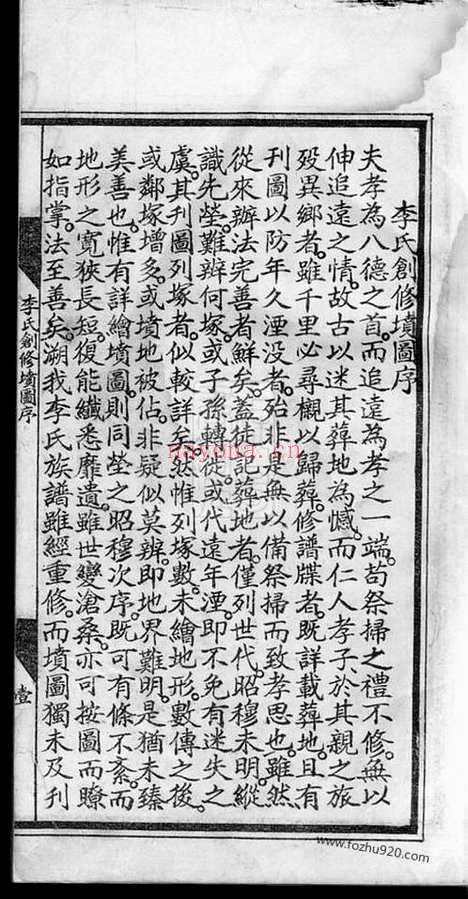 李氏創修墳圖序
夫孝為八德之首而追遠為孝之一端苟祭掃之禮不修無以
伸追遠之情故古以迷其葬地為憾而仁人孝子於其親之旅
歿異鄉者雖千里必尋櫬以歸葬修譜牒者既詳載葬地且有
刊圖以防年久湮没者殆非是無以備祭掃而致孝思也雖然
從來辦法完善者鮮矣蓋徒記葬地者僅列世代昭穆未明縱
識先塋難辨何塚或子孫轉徙或代遠年湮即不免有迷失之
虞其刊圖列塚者似較詳矣然惟列塚數未繪地形數傳之後
或鄰塚增多或墳地被佔非疑似莫辨即地界難明是猶未臻
美善也惟有詳繪墳圖則同塋之昭穆次序既可有條不紊而
地形之寬狹長短復能纖悉靡遺雖世變滄桑亦可按圖而瞭
如指掌法至善矣溯我李氏族譜雖經重修而墳圖獨未及刊
李氏創修墳圖序
壹
nayona.cn
www.fozhu920.com